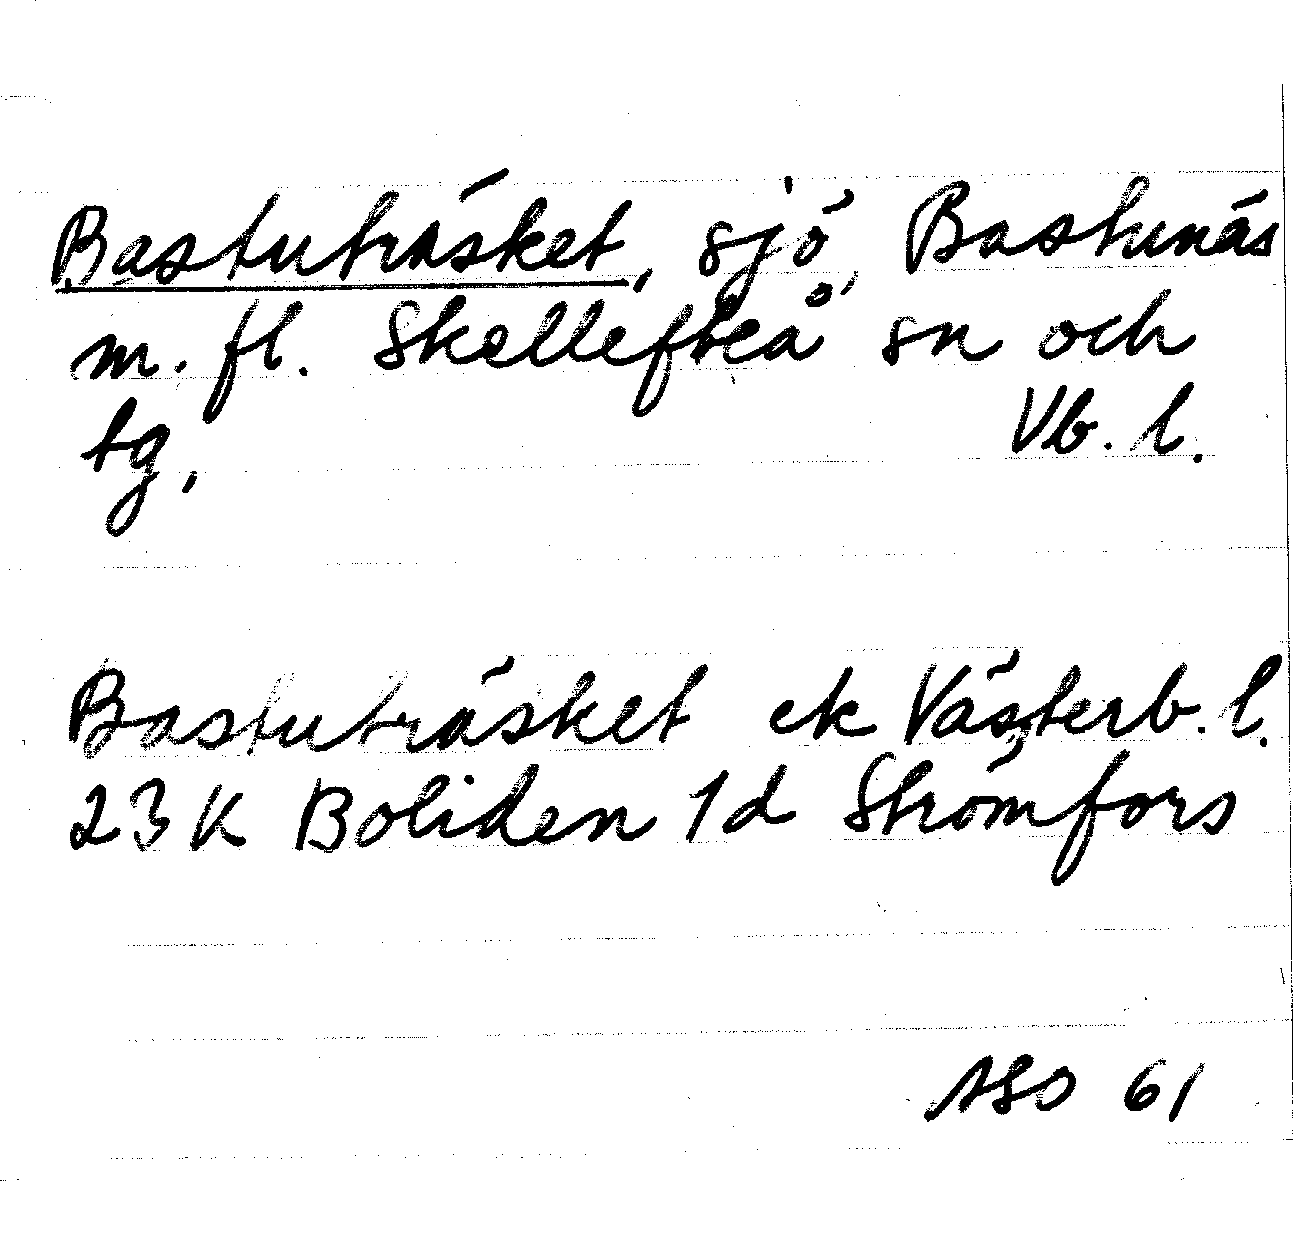 Bastuträsket, sjö, Bastunäs
m. fl. Skellefteå sn och
tg, Vb. l.
Bastuträsket ek Västerb. l.
23 K Boliden 1d Strömfors
ASO 61